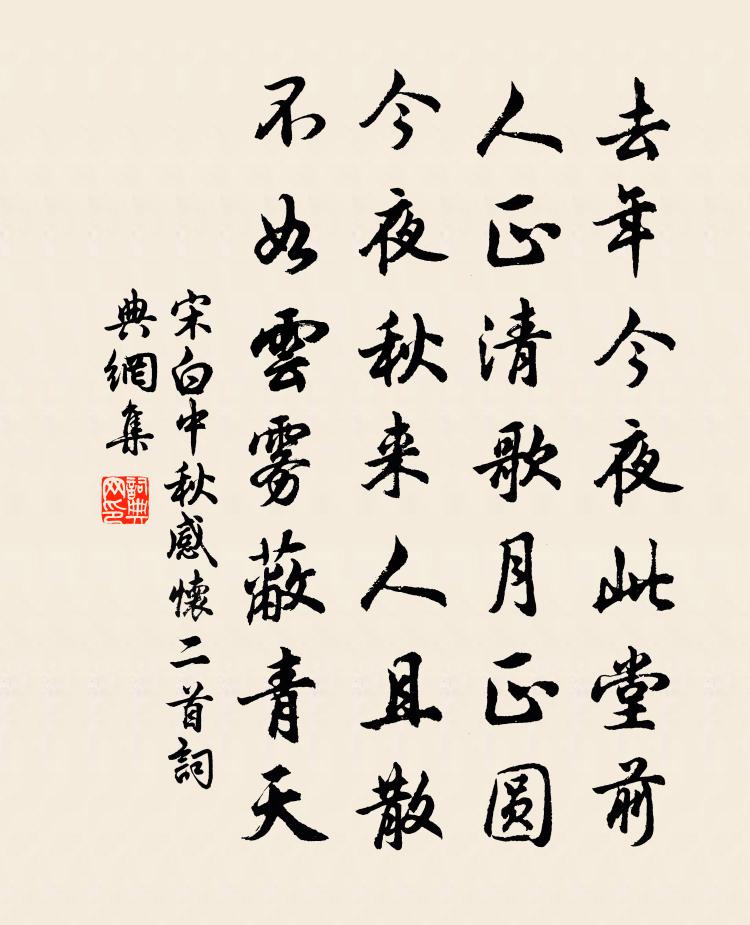 去年今夜此堂前
人正清歌月正圆
今夜秋来人且散
不如雲雾蔽青天
宋白中秋感懷二首詞
典網集
詞典
网印